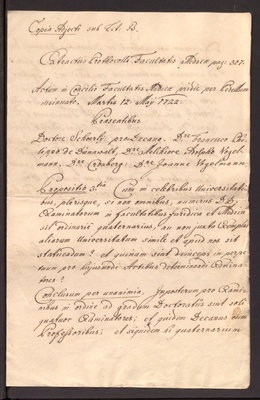 Copia Adjecti sub Lit. B.
Extractus Prothocolli Facultatis Medicæ pag: 307.
Actum in Consilio Facultatis Medicæ pridie per Pedellum
insinuato, Martis 12. Maij 1722.
Præsentibus
Doctore Scherffl, pro-Decano, Dre Francisco
Dre Melchiore
mann, Dre Dre Joanne Vogelmann
Propositio 3tia Cum in celebribus Universitati-
bus, plerisque, si non omnibus, numerus D. D.
Examinatorum in facultatibus juridica et Medica
sit ordinarie quaternarius, an non juxta Exempla
aliarum Universitatum simile et apud nos sit
statuendum? et quinam sint deinceps in perpe-
tuum pro hujusmodi Actibus determinandi Examina-
tores?
Conclusum per unanimia, Imposterum pro Exami-
nibus in ordine ad gradum Doctoratus sint soli
quatuor Examinatores; et quidem Decanus cum
Professoribus; et siquidem hi quaternarium